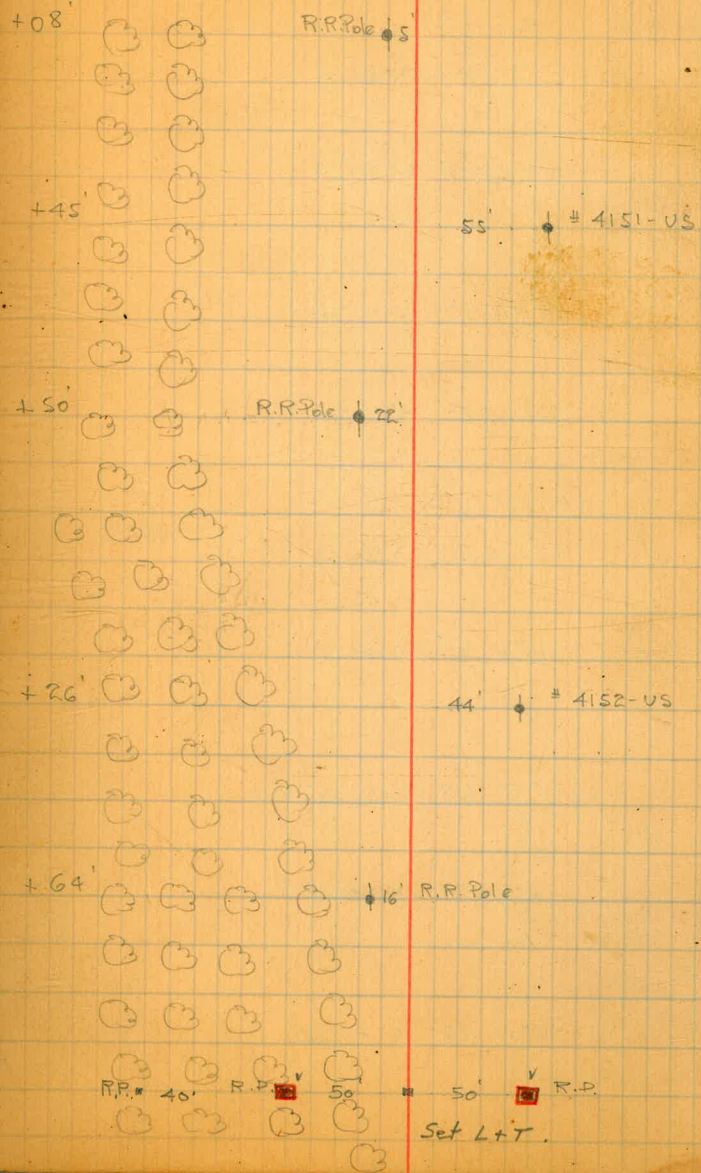 +08' R.R.Pole 5'
+45' 55' # 4151-US
+50' R.R.Pole 22'
+26' 44' # 4152-US
+64' 16' R.R. Pole
R.P. 40' R.D. 50' 50' R.D.
Set L+T.